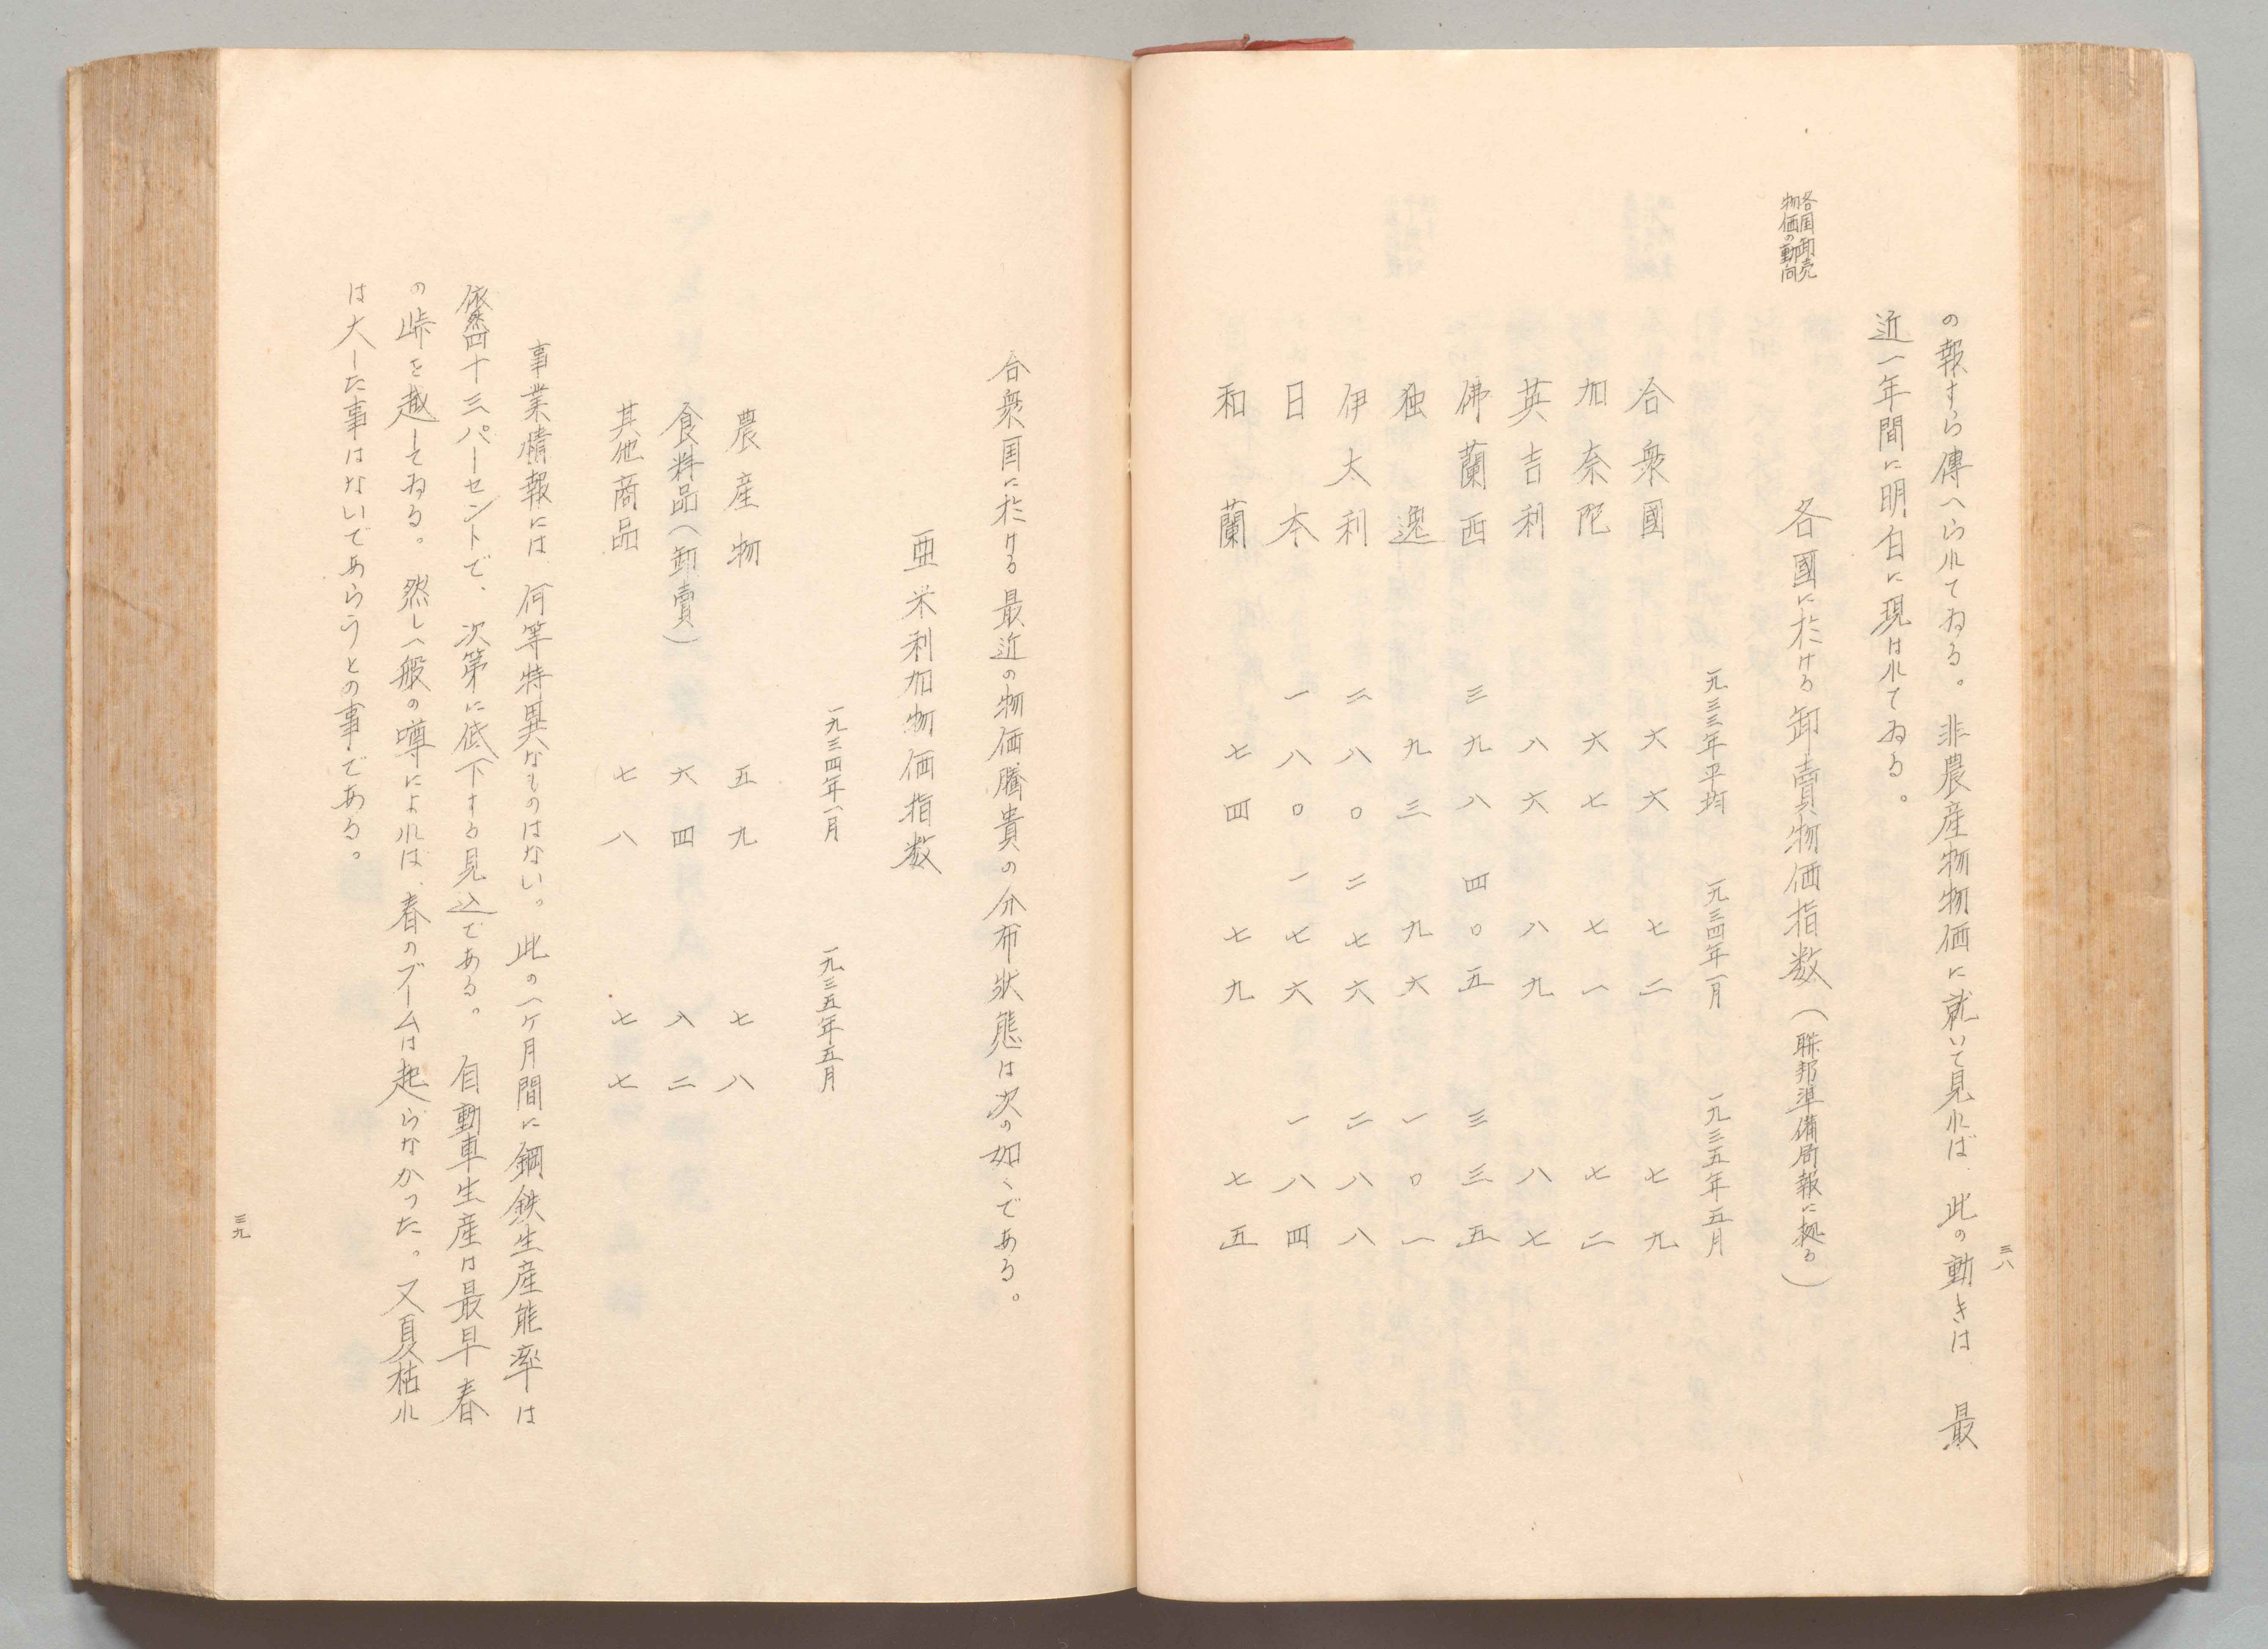 三八
の報すら傳へられてゐる。非農産物物価に就いて見れば、此の動きは、最
近一年間に明白に現はれてゐる。
各国卸売
物価の動向
各國に於ける卸賣物価指数（聯邦準備局報に拠る）
一九三三年平均 一九三四年一月 一九三五年五月
合衆國 六六 七二 七九
加奈陀 六七 七一 七二
英吉利 八六 八九 八七
佛蘭西 三九八 四〇五 三三五
独逸 九三 九六 一〇一
伊太利 二八〇 二七六 二八八
日本 一八〇 一七六 一八四
和蘭 七四 七九 七五
合衆国に於ける最近の物価騰貴の分布状態は次の如くである。
亜米利加物価指数
一九三四年一月 一九三五年五月
農産物 五九 七八
食料品（卸賣） 六四 八二
其他商品 七八 七七
事業情報には、何等特異なものはない。此の一ケ月間に鋼鉄生産能率は
依然四十三パーセントで、次第に低下する見込である。自動車生産は最早春
の峠を越してゐる。然し一般の噂によれば、春のブームは起らなかった。又夏枯れ
は大した事はないであらうとの事である。
三九